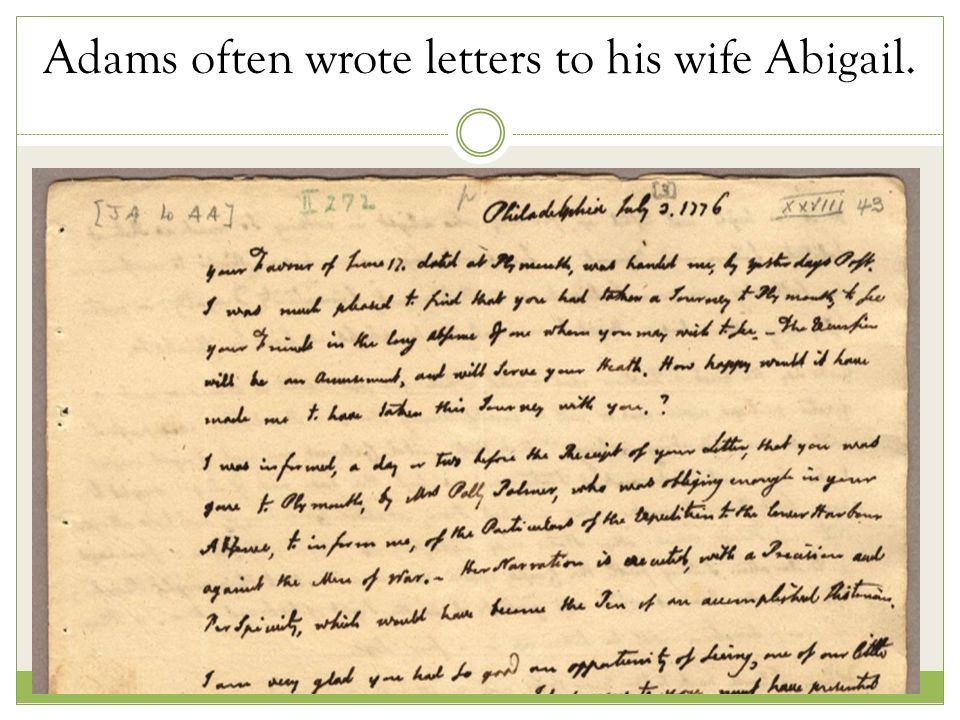 Adams often wrote letters to his wife Abigail.
[JA to AA]
II 272
[3]
Philadelphia July 3. 1776
XXVIII 43
your Favour of June 17. dated at Plymouth, was handed me, by yesterdays Post.
I was much pleased to find that you had taken a Journey to Plymouth, to see
your Friends in the long Absence of one whom you may wish to see. – The Excursion
will be an Amusement, and will serve your Health. How happy would it have
made me to have taken this Journey with you.?
I was informed, a day or two before the Receipt of your Letter, that you was
gone to Plymouth, by Mrs Polly Palmer, who was obliging enough in your
Absence, to inform me, of the Particulars of the Expedition to the lower Harbour
against the Men of War. – Her Narration is executed, with a Precision and
Perspicuity, which would have become the Pen of an accomplished Historian.
I am very glad you had so good an opportunity of seeing, one of our little
to you must have presented